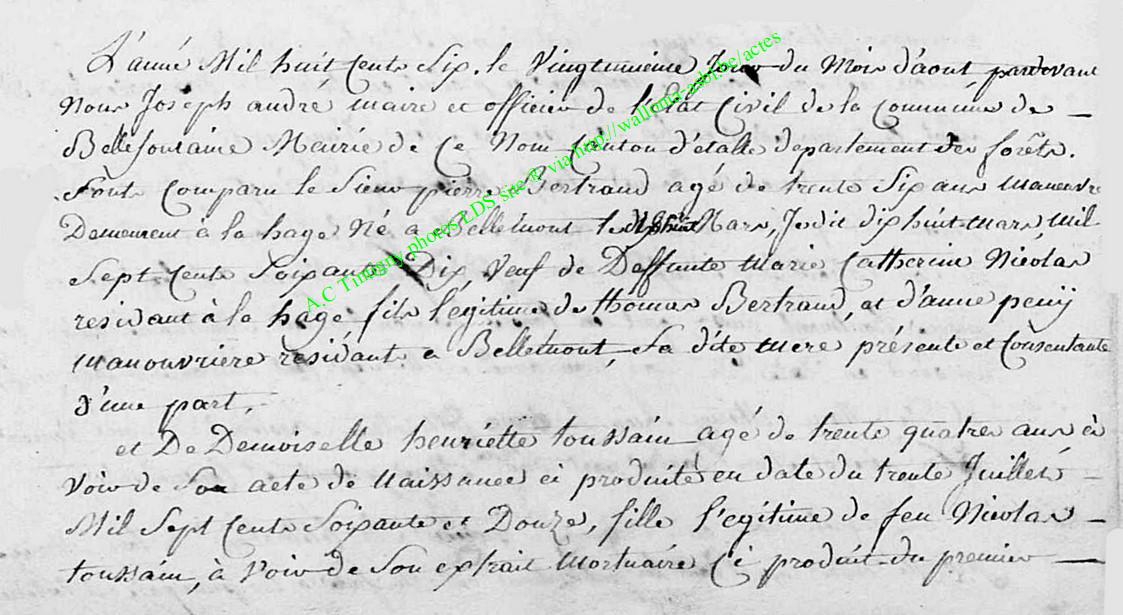 L'anné Mil huit Cents Six. le Vingtunieme Jour du Mois d'aout pardevant
Nous Joseph andré maire et officier de l'état Civil de la Commune de
Bellefontaine Mairie de Ce Nom Canton d'étalle departement des forêts.
Sont Comparu le Sieur pierre Bertrand agé de trente Six ans manouvre
Demeurent à la hage Né a Bellemont le Mars, Je dit dix huit Mars, Mil
Sept Cents Soixante Dix, Veuf de Deffunte Marie Catherine Nicolas
residant à la hage fils legitime de thomas Bertrand, et d'anne peny
Manouvriere residant a Bellemont, Sa dite Mere présente et Consentante
d'une part,
et De Demoiselle henriette toussain agé de trente quatres ans à
Voir de Son acte de Naissance ci produite en date du trente Juillet
Mil Sept Cents Soixante et Douze, fille l'egitime de feu Nicolas
toussain, à Voir de Son extrait Mortuaire Ci produit du premier
A.C Tintigny photos LDS site ® via http://wallonia-asbl.be/actes